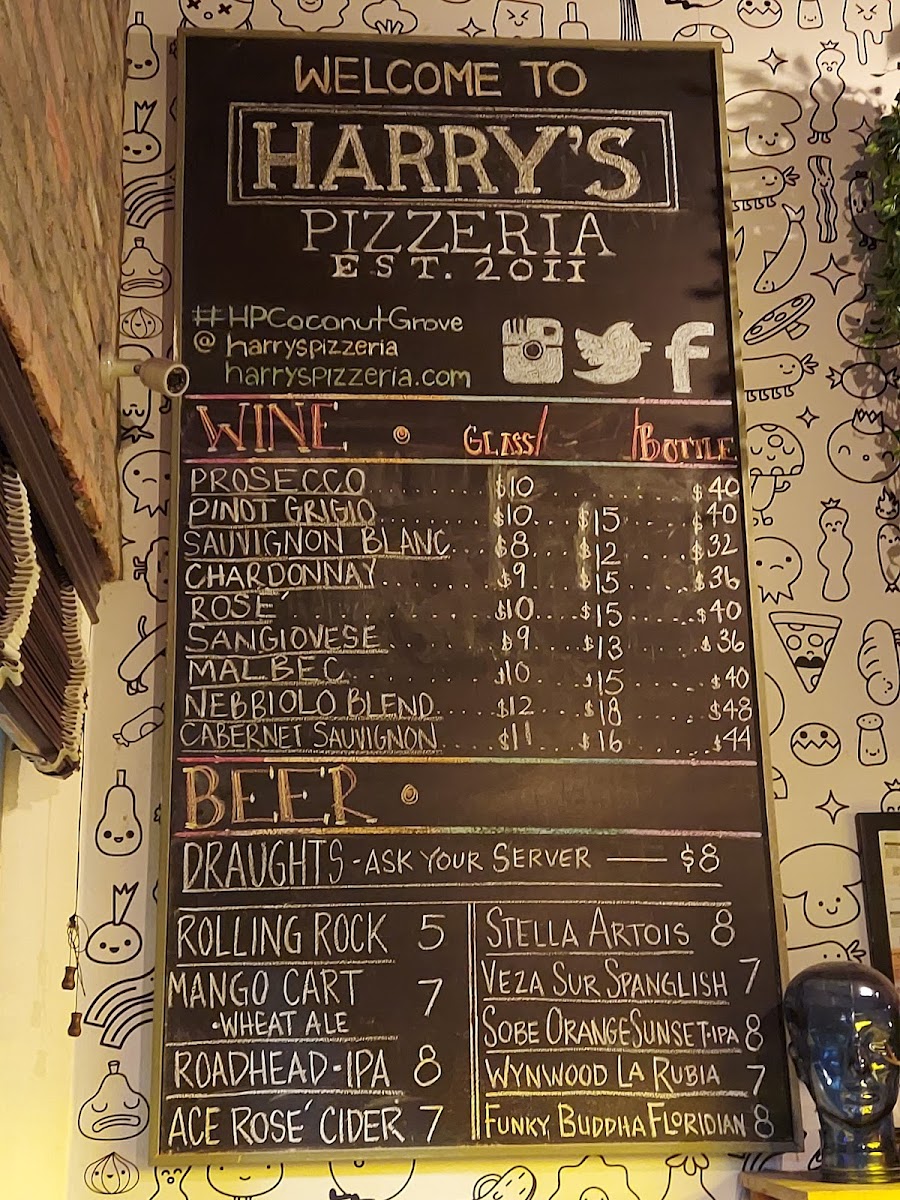 WELCOME TO
HARRY'S
PIZZERIA
EST. 2011
#HPCoconutGrove
@harryspizzeria
harryspizzeria.com
WINE • GLASS/ /BOTTLE
PROSECCO $10 $40
PINOT GRIGIO $10 $15 $40
SAUVIGNON BLANC $8 $12 $32
CHARDONNAY $9 $15 $36
ROSÉ $10 $15 $40
SANGIOVESE $9 $13 $36
MALBEC $10 $15 $40
NEBBIOLO BLEND $12 $18 $48
CABERNET SAUVIGNON $11 $16 $44
BEER •
DRAUGHTS - ASK YOUR SERVER — $8
ROLLING ROCK 5
MANGO CART 7
•WHEAT ALE
ROADHEAD-IPA 8
ACE ROSÉ CIDER 7
STELLA ARTOIS 8
VEZA SUR SPANGLISH 7
SOBE ORANGE SUNSET•IPA 8
WYNWOOD LA RUBIA 7
FUNKY BUDDHA FLORIDIAN 8